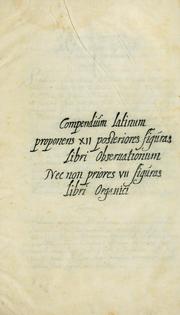 Compendiúm latinum
proponens XII posteriores figúras
libri Observationum
Nec non priores VII figúras
libri Organici